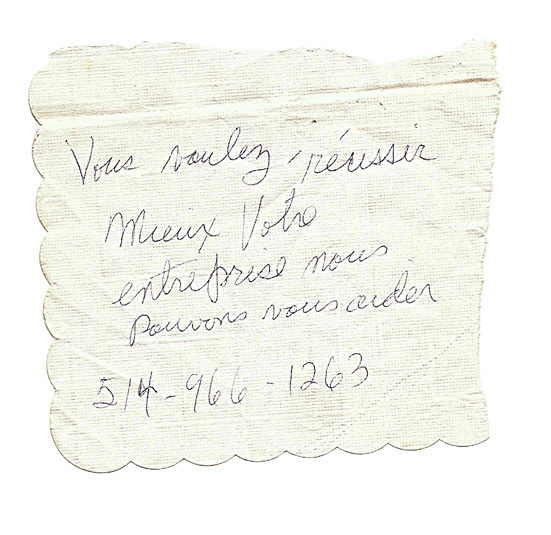 Vous voulez réussir
Mieux Votre
entreprise nous
pouvons vous aider
514-966-1263